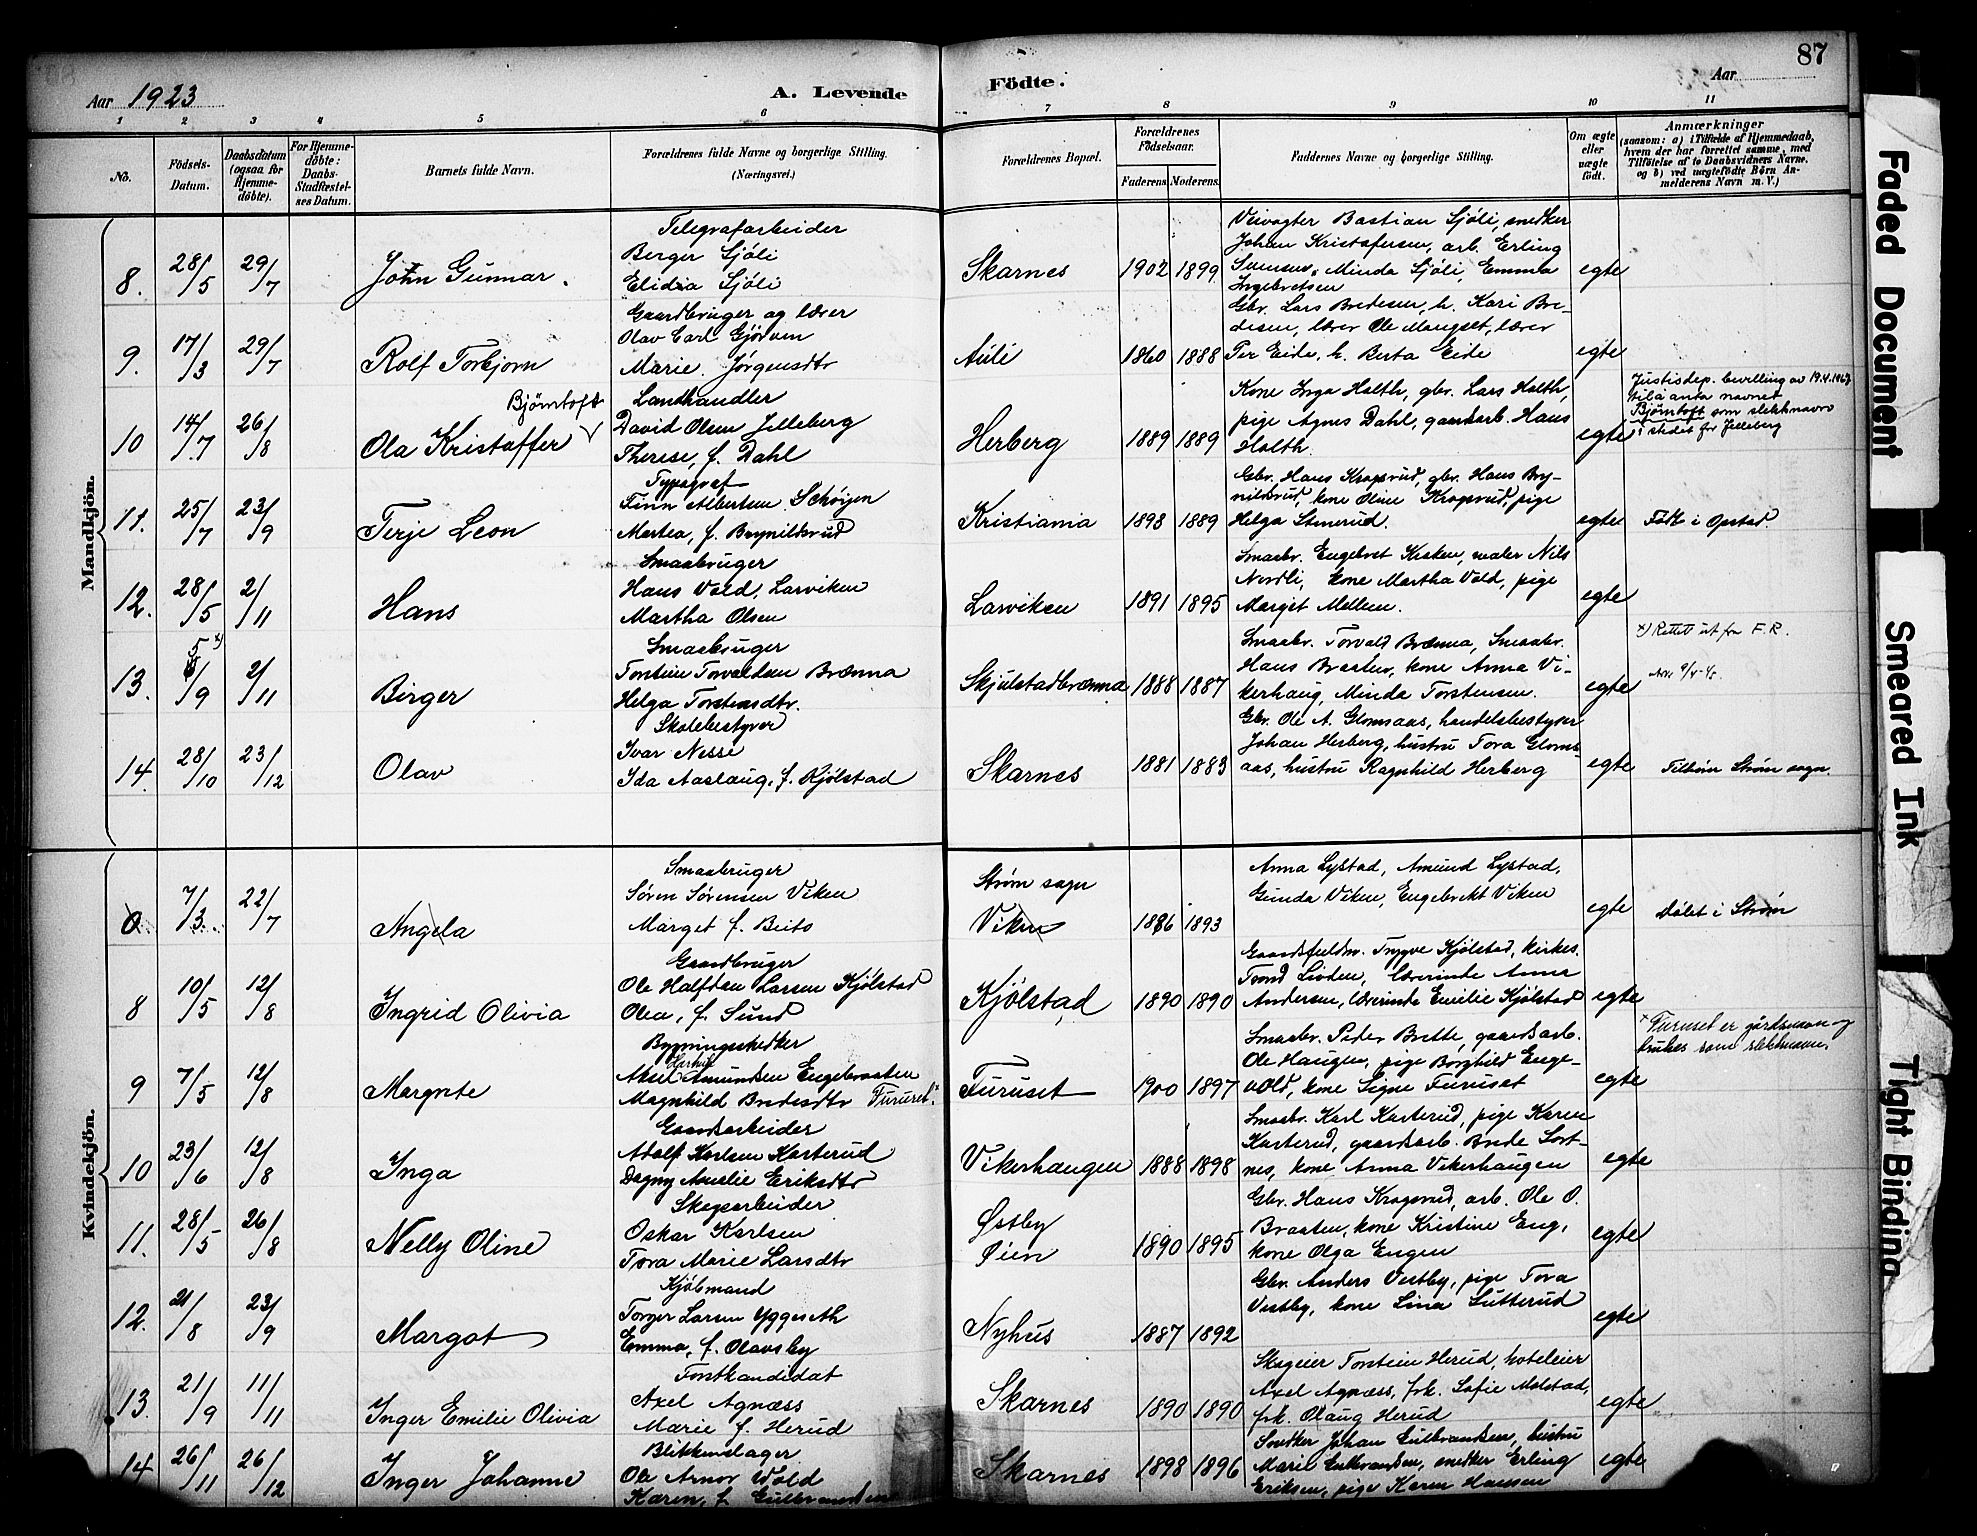 87
Aar 1923
A. Levende
Födte.
Aar
1 2 3 4 5 6 7 8 9 10 11
No.
Födsels-
Datum.
Daabsdatum
(ogsaa for
Hjemme-
döbte).
For Hjemme-
döbte:
Daabs-
Stadfæstel-
ses Datum.
Barnets fulde Navn.
Forældrenes fulde Navne og borgerlige Stilling.
(Næringsvei.)
Forældrenes Bopæl.
Forældrenes
Födselsaar.
Faderens. Moderens.
Faddernes Navne og borgerlige Stilling.
Om ægte
eller
uægte
födt.
Anmærkninger
(saasom: a) i Tilfælde af Hjemmedaab,
hvem der har forrettet samme, med
Tilföielse af to Daabsvidners Navne,
og b) ved uægtefödte Börn An-
melderens Navn m. V.)
Mandkjön.
8. 28/5 29/7 John Gunnar.
Telegrafarbeider
Berger Sjöli
Elidia Sjöli
Skarnes 1902 1899
Veivogter Bastian Sjöli, snedker
Johan Kristofersen, arb. Erling
Svensen, Minda Sjöli, Emma
Ingebretsen
egte
9. 17/3 29/7 Rolf Torbjorn
Gaardbruger og lærer
Olav Carl Gjörven
Marie Jörgensdtr
Auli 1860 1888
Gbr. Lars Bredesen, h. Kari Bre-
desen, lærer Ole Mangset, lærer
Per Eide, h. Berta Eide
egte
10 14/7 26/8 Ola Kristoffer
Bjørntoft
Landhandler
David Olsen Jelleberg
Therese, f. Dahl
Herberg 1889 1889
Kone Inga Holth, gbr. Lars Holth,
pige Agnes Dahl, gaardarb. Hans
Holth.
egte
Justisdep. bevilling av 19.4.
til å anta navnet
Bjørntoft som slektnavn
i stedet for Jelleberg
11. 25/7 23/9 Terje Leon
Typograf
Finn Albertsen Schøyen
Martea, f. Brynildsrud
Kristiania 1898 1889
Gbr. Hans Kragsrud, gbr. Hans Bry-
nildsrud, kone Oline Kragsrud, pige
Helga Stenerud.
egte Födt i Opstad
12. 28/5 2/11 Hans
Smaabruger
Hans Vold, Larviken
Martha Olsen
Larviken 1891 1895
Smaabr. Engebret Kroken, maler Nils
Nordli, kone Martha Vold, pige
Margit Mellem.
egte
13. 5/9 x) 2/11 Birger
Smaabruger
Torstein Torvaldsen Brænna
Helga Torstensdtr.
Skjulstadbrænna 1888 1887
Smaabr. Torvald Brænna, Smaabr.
Hans Braaten, kone Anna Vi-
kerhaug, Minda Torstensen.
egte
x) Rettet ut fra F.R.
14. 28/10 23/12 Olav
Skolebestyrer
Ivar Nesse
Ida Aaslaug, f. Kjölstad
Skarnes 1881 1883
Gbr. Ole A. Glomsaas, handelsbestyrer
Johan Herberg, hustru Tora Gloms-
aas, hustru Ragnhild Herberg
egte Tilhör Ström sogn.
Kvindekjön.
0. 7/3 22/7 Angela
Smaabruger
Søren Sørensen Viken
Marget f. Beito
Ström sogn
Viken 1886 1893
Anna Lystad, Amund Lystad,
Gunda Viken, Engebrekt Viken
egte Dölet i Ström
8 10/5 12/8 Ingrid Olivia
Gaardbruger
Ole Halfdan Larsen Kjölstad
Olea, f. Sund
Kjölstad 1890 1890
Gaardsfuldm. Trygve Kjölstad, kirkes.
Trond Livden, lærerinde Anna
Andersen, lærerinde Emilie Kjölstad
egte
9 7/5 12/8 Margrete
Bygningssnedker
Aksel Amundsen Engebraaten
Magnhild Bredesdtr Furuset.x
Furuset 1900 1897
Smaabr. Peder Brette, gaardsarb.
Ole Haugen, pige Borghild Enge-
vold, kone Signe Furuset
egte
x Furuset er gårdsnavn og
brukes som slektsnavn.
10 23/6 12/8 Inga
Gaardsarbeider
Adolf Karlsen Karterud
Dagny Amalie Eriksdtr
Vikerhaugen 1888 1898
Smaabr. Karl Karterud, pige Karen
Karterud, gaardsarb. Brede Sort-
nes, kone Anna Vikerhaugen
egte
11. 28/5 26/8 Nelly Oline
Skogsarbeider
Oskar Karlsen
Tora Marie Larsdtr
Østby
Øien 1890 1895
Gbr. Hans Kragsrud, arb. Ole O.
Braaten, kone Kristine Eng,
kone Olga Engen
egte
12. 21/8 23/9 Margot
Kjöbmand
Torger Larsen Yggeseth
Emma, f. Olavsby
Nyhus 1887 1892
Gbr. Anders Vestby, pige Tora
Vestby, kone Lina Sutterud
egte
13. 21/9 11/11 Inger Emilie Olivia
Forstkandidat
Axel Agnæss
Marie f. Herud
Skarnes 1890 1890
Skogeier Torstein Herud, hoteleier
Axel Agnæss, frk. Sofie Molstad,
frk. Olaug Herud
egte
14 26/11 26/12 Inger Johanne
Blikkenslager
Ole Arnor Wold
Karen, f. Gulbrandsen
Skarnes 1898 1896
Snedker Johan Gulbrandsen, hustru
Marie Gulbrandsen, snedker Erling
Eriksen, pige Karen Hanssen
egte
Faded Document
Smeared Ink
Tight Binding